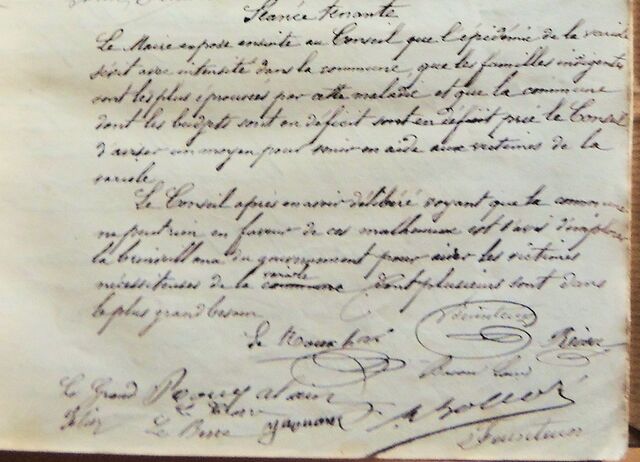 Séance tenante
Le Maire expose ensuite au Conseil que l'épidémie de la variole
sévit avec intensité dans la commune, que les familles indigentes
sont les plus éprouvées par cette maladie et que la commune
dont les budgets sont en déficit sont en déficit prie le Conseil
d'aviser un moyen pour venir en aide aux victimes de la
variole.
Le Conseil après en avoir délibéré voyant que la commune
ne peut rien en faveur de ces malheureux est d'avis d'implorer
la bienveillance du gouvernement pour aider les victimes
variole
nécessiteuses de la commune dont plusieurs sont dans
le plus grand besoin
Le
Le Grand
Le Borve